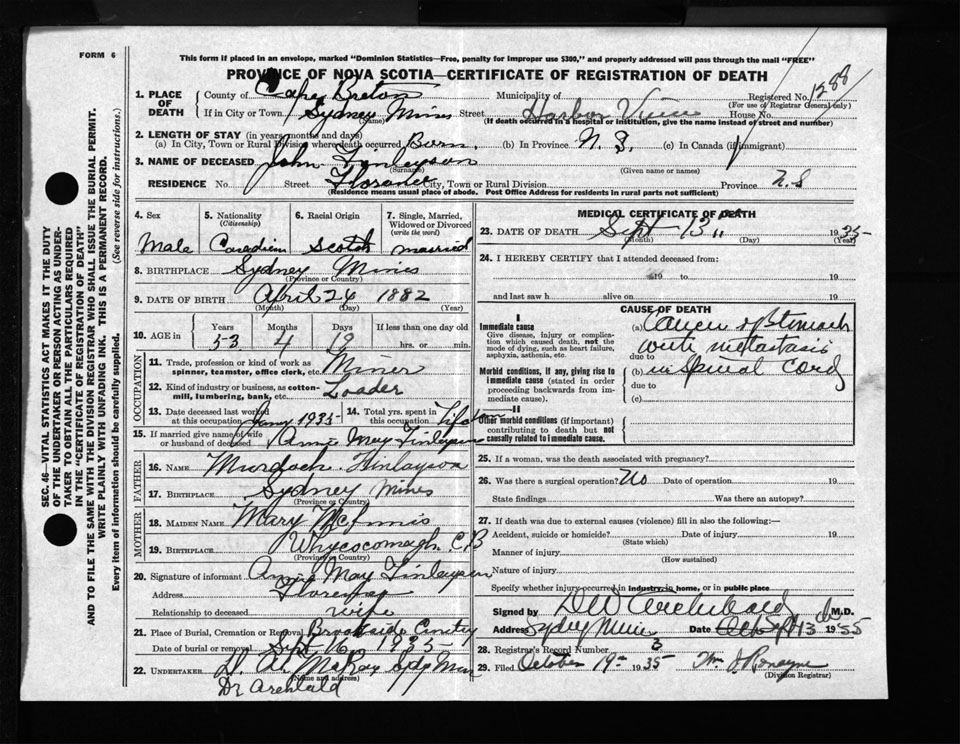 FORM 6
This form if placed in an envelope, marked "Dominion Statistics—Free, penalty for improper use $300," and properly addressed will pass through the mail "FREE"
PROVINCE OF NOVA SCOTIA—CERTIFICATE OF REGISTRATION OF DEATH
1. PLACE OF DEATH
County of Cape Breton Municipality of Registered No. 1288
(For use of Registrar General only)
If in City or Town Sydney Mines Street Harbor View House No.
(Name) (If death occurred in a hospital or institution, give the name instead of street and number)
2. LENGTH OF STAY (in years, months and days)
(a) In City, Town or Rural Division where death occurred Born. (b) In Province N. S. (c) In Canada (if immigrant)
3. NAME OF DECEASED John Finlayson
(Surname) (Given name or names)
RESIDENCE No. Street Florence City, Town or Rural Division Province N.S
(Residence means usual place of abode. Post Office Address for residents in rural parts not sufficient)
4. Sex 5. Nationality (Citizenship) 6. Racial Origin 7. Single, Married, Widowed or Divorced (write the word)
Male Canadian Scotch married
8. BIRTHPLACE Sydney Mines
(Province or Country)
9. DATE OF BIRTH April 24 1882
(Month) (Day) (Year)
10. AGE in Years Months Days If less than one day old
53 4 19 hrs. or min.
OCCUPATION
11. Trade, profession or kind of work as spinner, teamster, office clerk, etc. Miner
12. Kind of industry or business, as cotton-mill, lumbering, bank, etc. Loader
13. Date deceased last worked at this occupation Jany 1935 14. Total yrs. spent in this occupation
15. If married give name of wife or husband of deceased Annie May Finlayson
FATHER
16. NAME Murdoch Finlayson
17. BIRTHPLACE Sydney Mines
(Province or Country)
MOTHER
18. MAIDEN NAME Mary McInnis
19. BIRTHPLACE Whycocomagh C B
(Province or Country)
20. Signature of informant Annie May Finlayson
Address Florence
Relationship to deceased wife
21. Place of Burial, Cremation or Removal Brookside
Date of burial or removal Sept 16 1935
22. UNDERTAKER D. A. McKay Syd Mines
(Name and address)
Dr Archibald
MEDICAL CERTIFICATE OF DEATH
23. DATE OF DEATH Sept 13 1935
(Month) (Day) (Year)
24. I HEREBY CERTIFY that I attended deceased from:
19 to 19
and last saw h alive on 19
CAUSE OF DEATH
I
Immediate cause
Give disease, injury or complication which caused death, not the mode of dying, such as heart failure, asphyxia, asthenia, etc.
(a) Cancer of Stomach
with metastasis
due to
(b) in Spinal Cord
due to
(c)
Morbid conditions, if any, giving rise to immediate cause (stated in order proceeding backwards from immediate cause).
II
Other morbid conditions (if important) contributing to death but not causally related to immediate cause.
25. If a woman, was the death associated with pregnancy?
26. Was there a surgical operation? No Date of operation 19
State findings Was there an autopsy?
27. If death was due to external causes (violence) fill in also the following:—
Accident, suicide or homicide? Date of injury 19
(State which)
Manner of injury
(How sustained)
Nature of injury
Specify whether injury occurred in industry, in home, or in public place
Signed by D W Archibald M.D.
Address Sydney Mines Date Sept 13 1935
28. Registrar's Record Number 3
29. Filed October 19 1935 Wm J Ronayne
(Division Registrar)
SEC. 46—VITAL STATISTICS ACT MAKES IT THE DUTY
OF THE UNDERTAKER OR PERSON ACTING AS UNDER-
TAKER TO OBTAIN ALL THE PARTICULARS REQUIRED
IN THE "CERTIFICATE OF REGISTRATION OF DEATH"
AND TO FILE THE SAME WITH THE DIVISION REGISTRAR WHO SHALL ISSUE THE BURIAL PERMIT.
WRITE PLAINLY WITH UNFADING INK. THIS IS A PERMANENT RECORD.
Every item of information should be carefully supplied. (See reverse side for instructions.)